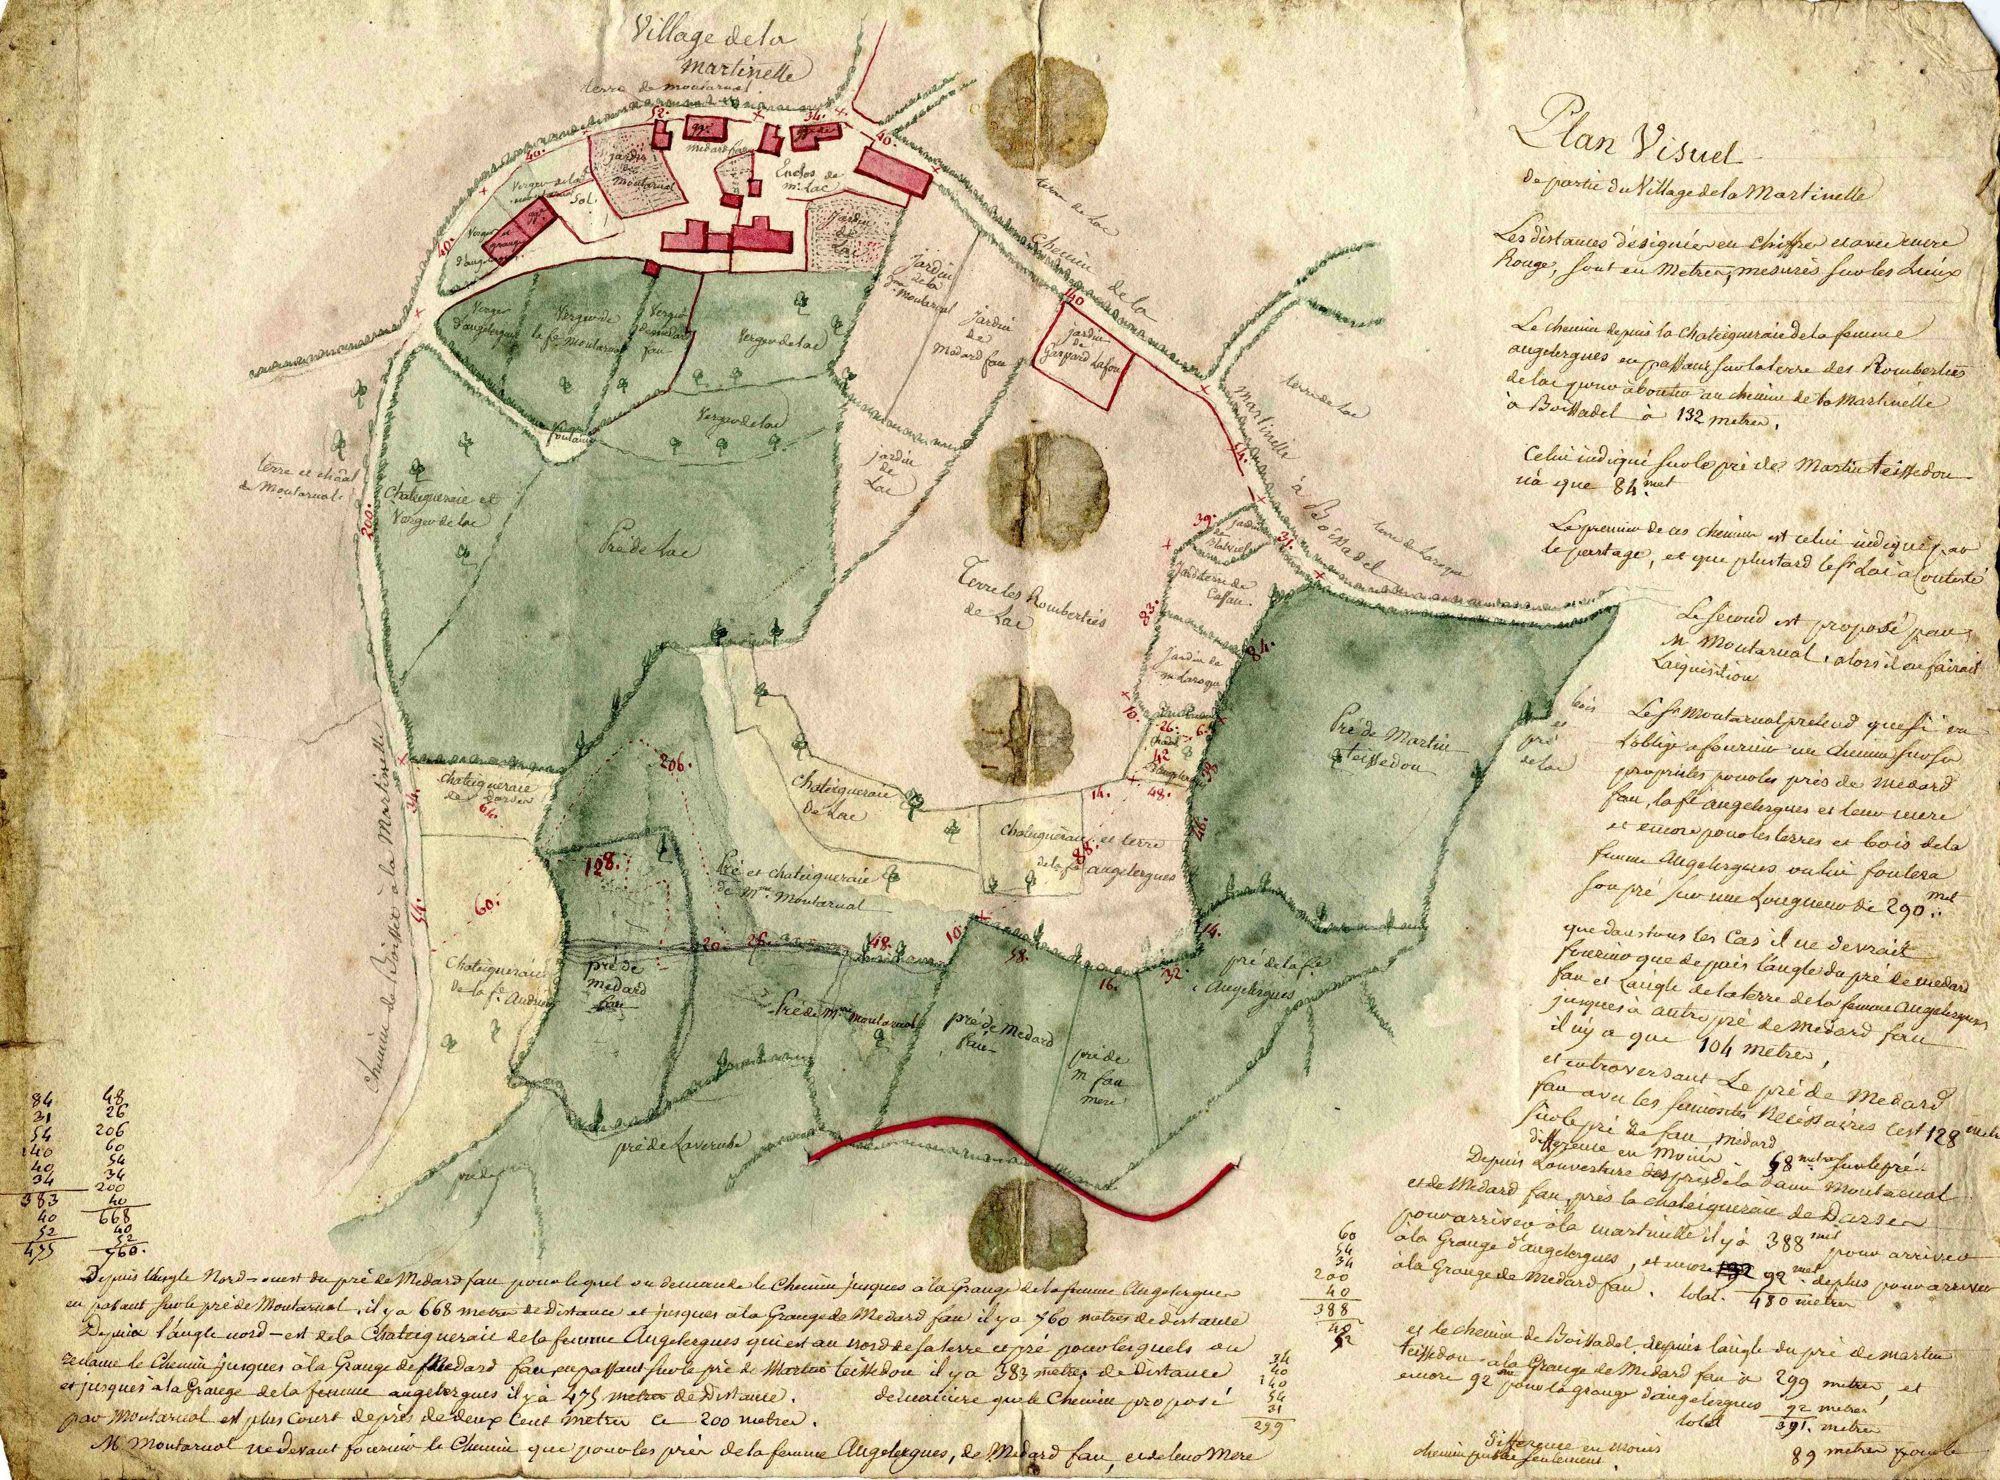 Village de la
Martinelle
terre de moutarual
52.
34.
40.
40.
40.
gge
gge de
medard fau
jardin
de
Moutarual
Enclos de
mr Lac
Sol.
Verger de la
Verger
d'angelergues
grange
Jardin
de
Lac
terre de Lac
Chemin de la
martinelle
à Boissadel
140
Jardin
de la
Moutarual
Jardin
de
Medard fau
jardin
de
Gaspard Lafon
terre de Lac
Verger
d'angelergues
Verger de
la fe Moutarual
Verger
de medard
fau
Verger de Lac
Verger de Lac
fontaine
jardin
de
Lac
terre et chaat
de Moutarual
200.
Chateigneraie et
Verger de Lac
Pré de Lac
54.
39.
31.
terre de Laroque
Jardin de
Lafau.
Terre les Romberties
de Lac
83.
84.
Jardin de
mr Laroque
10.
26.
6.
42
48.
38
14.
46.
Pré de Martin
teissedou
bois
et
pré
de Lac
206.
Chateigneraie
de Darsen
64.
34.
Chateigneraie
De Lac
Chateigneraie et terre
de la fe angelergues
88.
128.
Pré et chateigneraie
de Mme Moutarual
60.
54.
20.
26.
48.
10.
58.
16.
32.
14.
Chateigneraie
de la fe
pré de
medard
fau
Pré de Mme Moutarual
pré de Medard
fau
pré de
m fau
mere
pré de la fe
Angelergues
Chemin de Boissex à la Martinelle
pré de Laveruhe
pré de
Plan Visuel
de partie du Village de la Martinelle
Les distances désignées en chiffres et avec encre
Rouge, sont en Metres, mesurés sur les Lieux
Le chemin depuis la chateigneraie de la femme
angelergues en passant sur la terre des Romberties
de Lac pour aboutir au chemin de la Martinelle
à Boissadel à 132 metres.
Celui indiqué sur le pré de Martin teissedou
n'a que 84 met
Le premier de ces chemins est celui indiqué par
le partage, et que plus tard le Sr Lac a contesté
Le second est proposé par
M Moutarual, alors il en fairait
L'acquisition
Le Sr Moutarual pretend que si on
l'oblige a fournir un chemin sur sa
proprieté pour les prés de Medard
fau, la fe angelergues et leur mere
et encore pour les terres et bois de la
femme Angelergues on lui foulera
son pré sur une Longueur de 290 met
que dans tous les cas il ne devrait
fournir que depuis l'angle du pré de medard
fau et L'angle de la terre de la femme Angelergues
jusques à autre pré de Medard fau
il n'y a que 104 metres,
et en traversant Le pré de Medard
fau avec les sinuosités Nécessaires c'est 128 metres
sur le pré de fau Medard
difference en moins 68 metres sur le pré
Depuis L'ouverture des prés de la dame Moutarual
et de Medard fau, près la chateigneraie de Darsen
pour arriver à la martinelle il y a 388 met pour arriver
à la Grange d'angelergues, et encore 92 met de plus pour arriver
à la Grange de Medard fau. total. 480 metres
et le chemin de Boissadel, depuis l'angle du pré de martin
teissedou à la Grange de Medard fau a 299 metres, et
encore 92 me pour la grange d'angelergues 92 metres
total 391. metres
difference en moins 89 metres pour le
chemin public seulement.
84 48
31 26
54 206
140 60
40 54
34 34
200
383 40
40 668
52 40
52
475 760.
60
54
34
200
40
388
40
52
34
40
140
54
31
299
Depuis l'angle Nord-ouest du pré de Medard fau pour lequel on demande le Chemin jusques à la Grange de la femme Angelergues
en passant sur le pré de Moutarual, il y a 668 metres de distance et jusques à la Grange de Medard fau il y a 760 metres de distance
Depuis l'angle nord-est de la Chateigneraie de la femme Angelergues qui est au nord de sa terre et pré pour lesquels on
reclame le Chemin jusques à la Grange de Medard fau, en passant sur le pré de Martin teissedou il y a 383 metres de distance
et jusques à la Grange de la femme angelergues il y a 475 metres de distance. de maniere que le Chemin proposé
par Moutarual est plus court de près de deux cent metres ce 200 metres.
Mr Moutarual ne devant fournir le Chemin que pour les prés de la femme Angelergues, de Medard fau, et de leur Mere